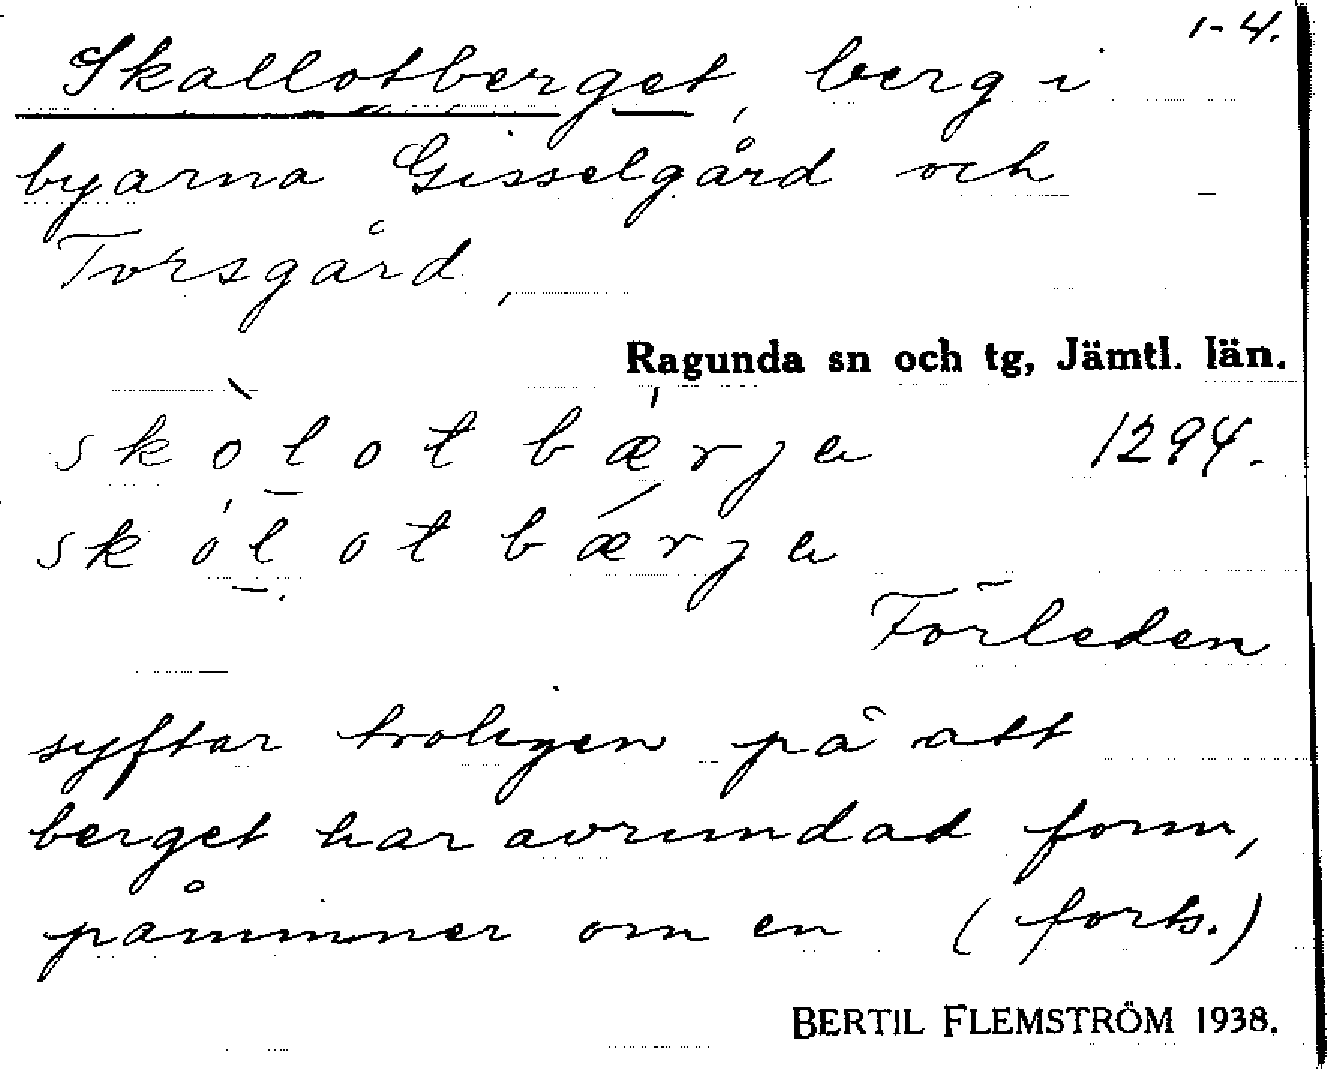 1-4.
Skallotberget, berg i
byarna Gisselgård och
Torsgård,
Ragunda sn och tg, Jämtl. län.
skòlotbǽrja 1294.
skólotbǽrja
Förleden
syftar troligen på att
berget har avrundad form,
påminner om en (forts.)
BERTIL FLEMSTRÖM 1938.